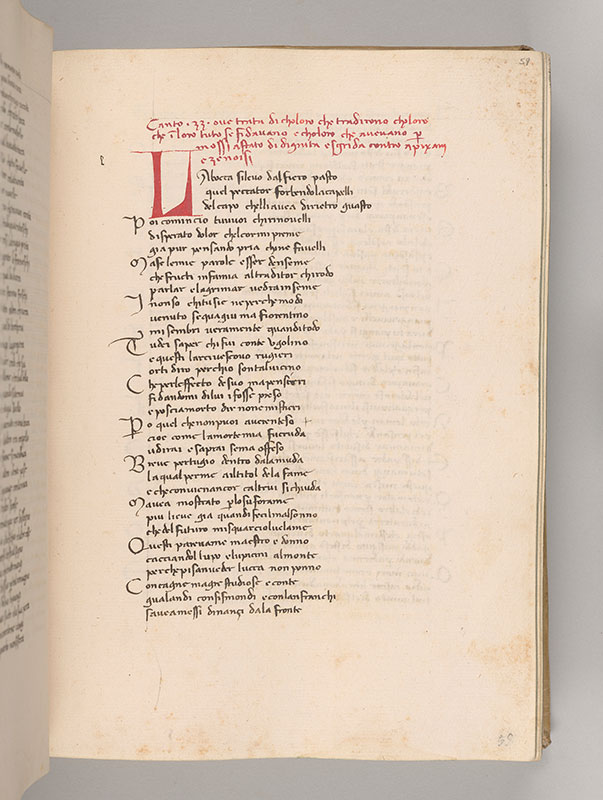 59
Canto · 33 · oue tratta di choloro che tradirono choloro
che i loro tuto se fidauano e choloro che aueuano p
mossi astato di dignita e sgrida contro a pixani
e zenoisi
LA bocca sileuo dalfiero pasto
quel peccator forbendola capelli
del capo chelli auea dirietro guasto
Poi comincio tu uuoi chi rinouelli
disperato dolor chel cor mi preme
gia pur pensando pria chi ne fauelli
Ma se le mie parole esser den seme
che frutti infamia al traditor chi rodo
parlar e lagrimar uedra insieme
I non so chi tu sie ne per che modo
uenuto se qua giu ma fiorentino
mi sembri ueramente quandi todo
Tu dei saper chi fui conte ugolino
e questi larciuescouo rugieri
or ti diro perchio son tal uicino
Che per leffecto de suo ma penseri
fidandomi di lui i fosse preso
e poscia morto dir none mistieri
Po quel che non puoi auer enteso
cioe come la morte mia fu cruda
udirai e saprai se ma offeso
Breue pertugio dentro dala muda
la qual per me a il titol de la fame
e che conuien ancor caltrui si chiuda
Mauea mostrato p lo su forame
piu lieue gia quandi feci l mal sonno
che del futuro mi squarcio l uelame
Questi pareua me maestro e donno
cacciando l lupo e lupicini al monte
per che pisan ueder lucca non ponno
Con cagne magre studiose e conte
gualandi con sismondi e con lanfranchi
sauea messi dinançi da la fronte